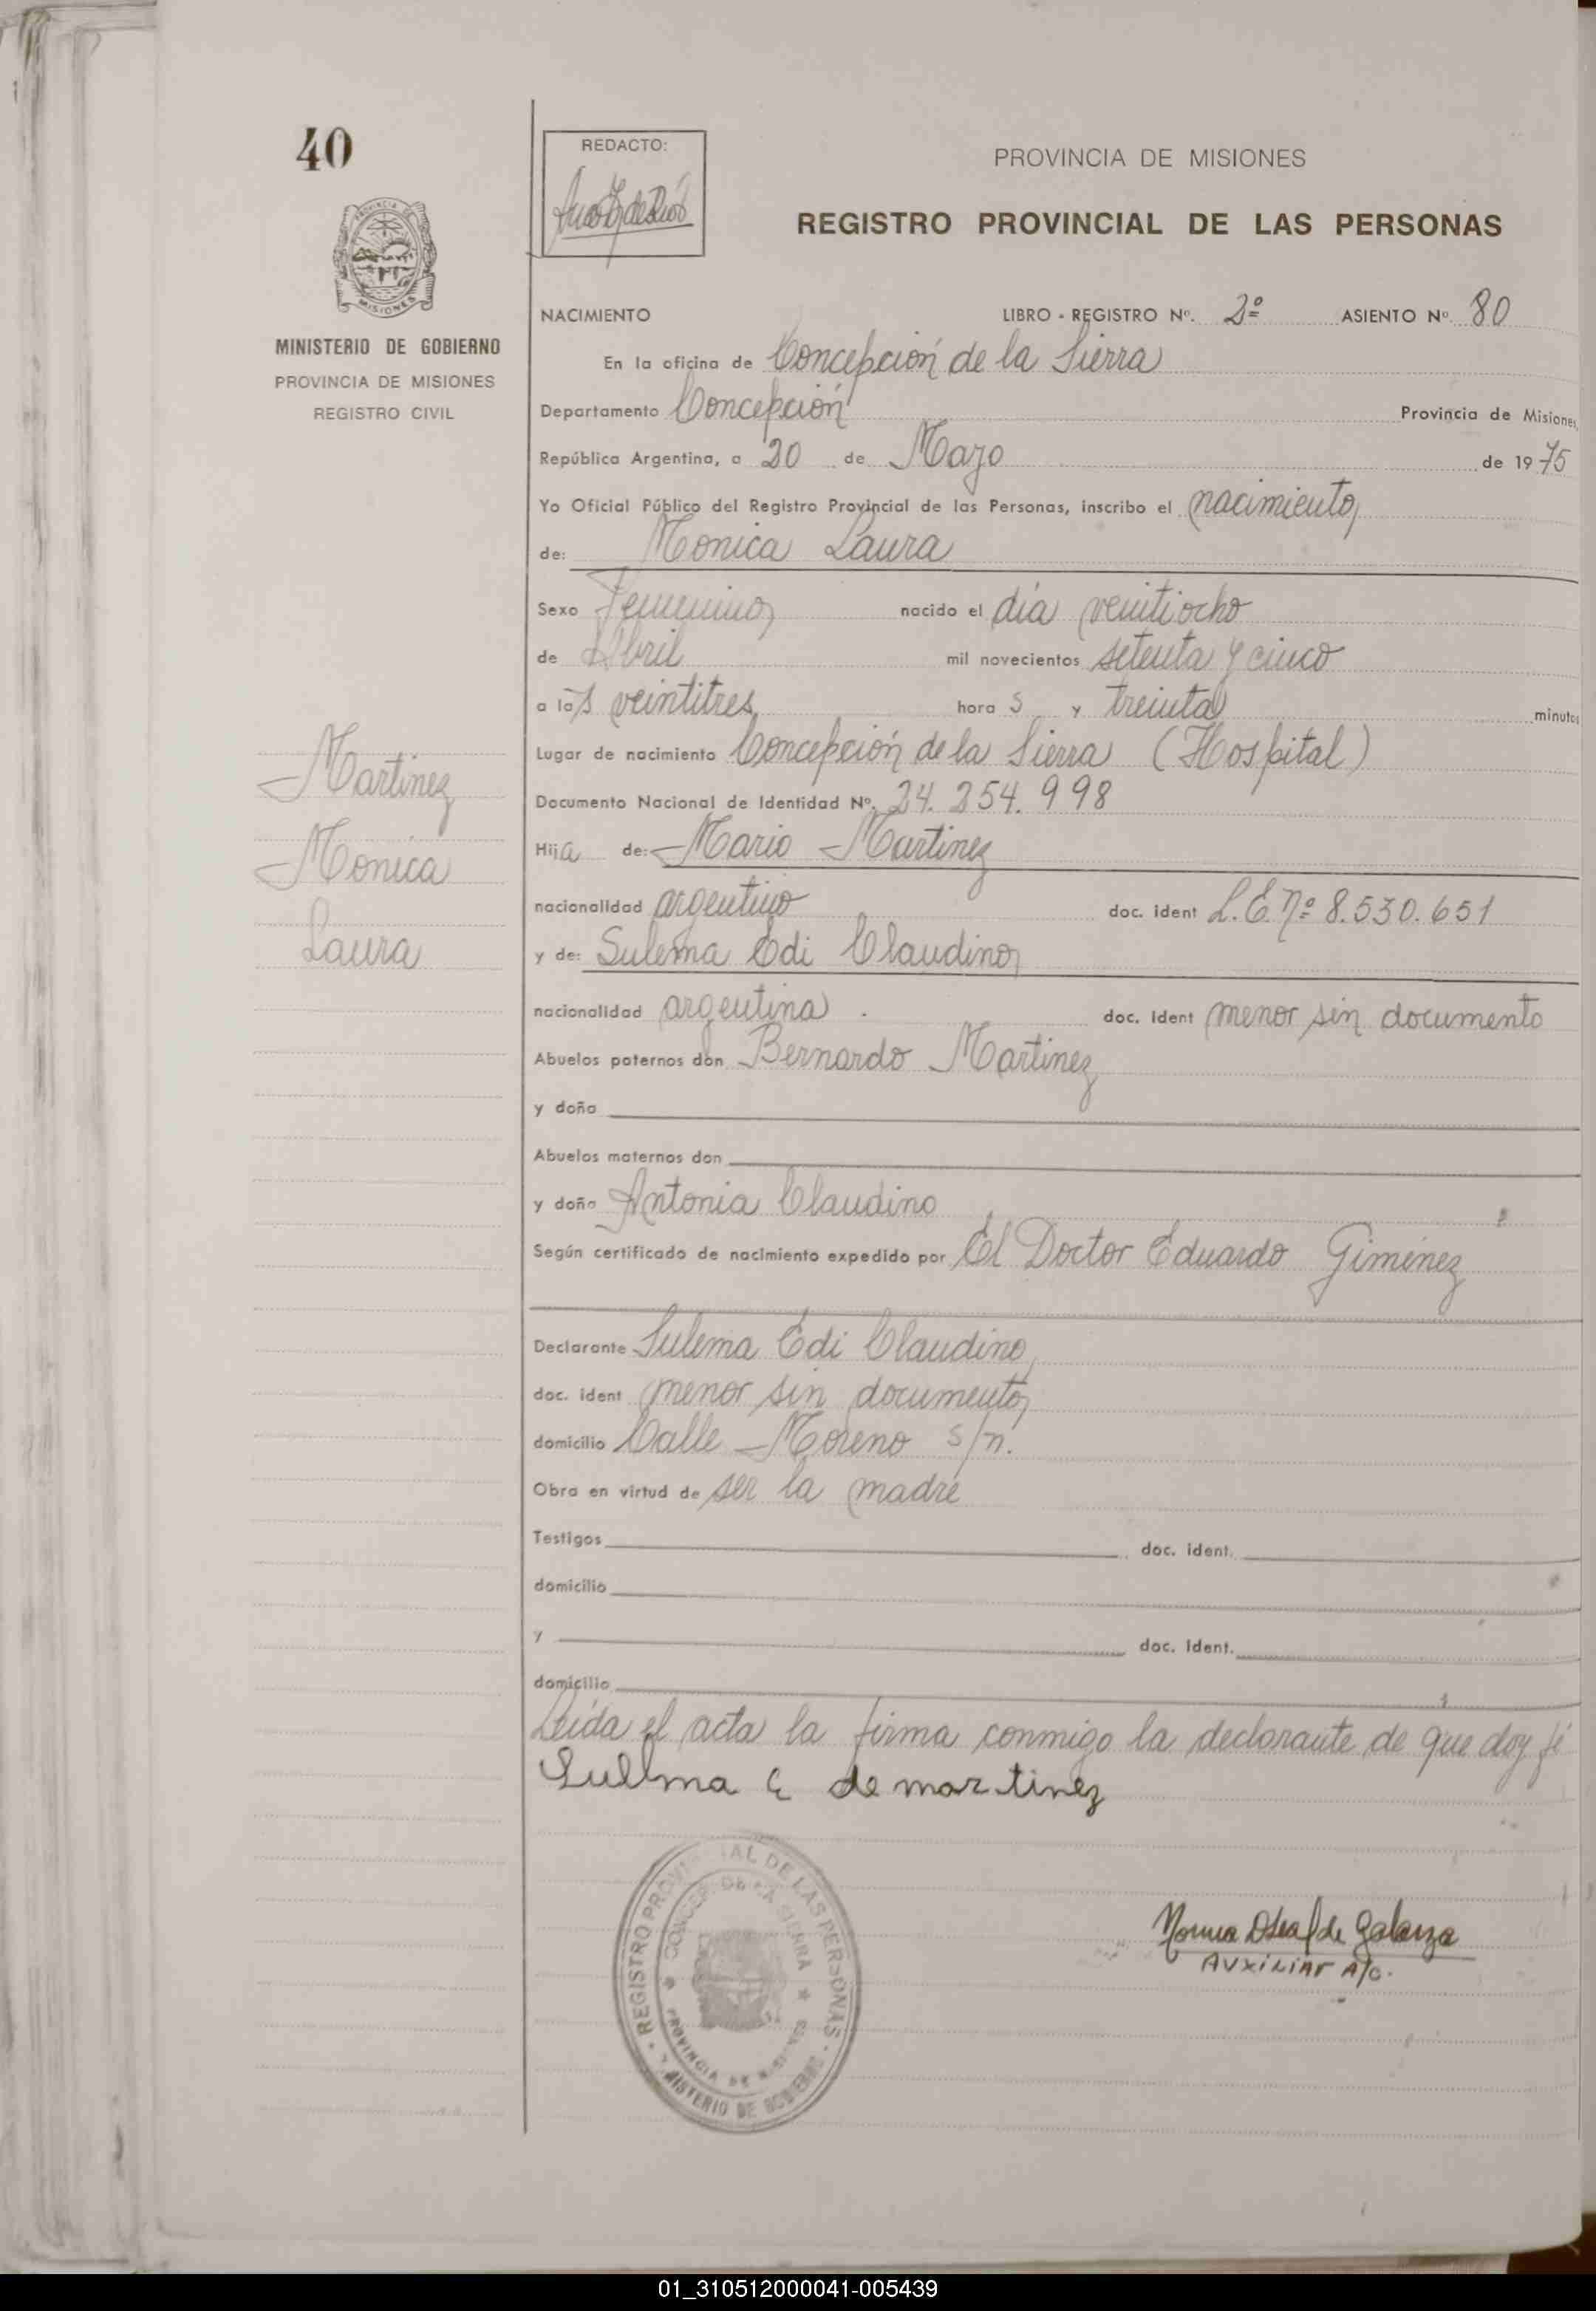 40
REDACTO:
PROVINCIA DE MISIONES
REGISTRO PROVINCIAL DE LAS PERSONAS
MISIONES
MINISTERIO DE GOBIERNO
PROVINCIA DE MISIONES
REGISTRO CIVIL
NACIMIENTO LIBRO - REGISTRO Nº. 2º ASIENTO Nº. 80
En la oficina de Concepción de la Sierra
Departamento Concepción Provincia de Misiones,
República Argentina, a 20 de Mayo de 1975
Yo Oficial Público del Registro Provincial de las Personas, inscribo el nacimiento
de: Monica Laura
Sexo Femenino nacido el día venitiocho
de Abril mil novecientos setenta y cinco
a las veintitres hora s y treinta minutos
Lugar de nacimiento Concepción de la Sierra (Hospital)
Documento Nacional de Identidad Nº. 24.254.998
Hija de: Mario Martinez
nacionalidad argentino doc. ident L.E. nº 8.530.651
y de: Sulema Edi Claudino
nacionalidad argentina. doc. ident menor sin documento
Abuelos paternos don Bernardo Martinez
y doña
Abuelos maternos don
y doña Antonia Claudino
Según certificado de nacimiento expedido por El Doctor Eduardo Giménez
Declarante Sulema Edi Claudino
doc. ident menor sin documento
domicilio Calle Moreno s/n.
Obra en virtud de ser la madre
Testigos doc. ident.
domicilio
y doc. ident.
domicilio
Leida el acta la firma conmigo la declarante de que doy fé
Sullma C de martinez
Martinez
Monica
Laura
REGISTRO PROVINCIAL DE LAS PERSONAS
CONCEP. DE LA SIERRA
PROVINCIA DE MISIONES
MINISTERIO DE GOBIERNO
de Galarza
AUXiLiAr A/C.
01_310512000041-005439